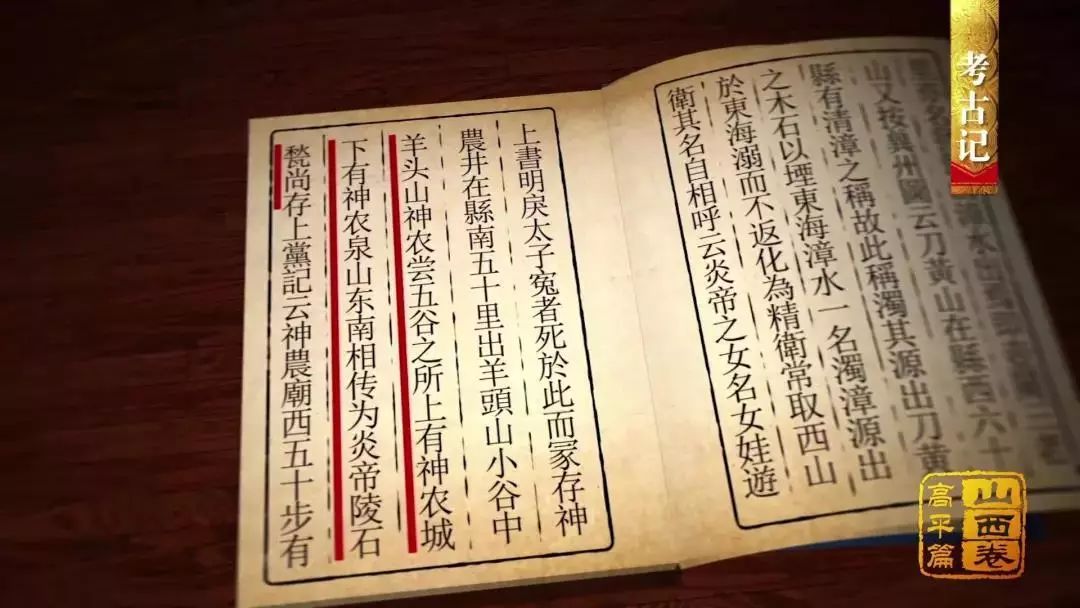 考古记
山又按冀州圖云刀黃山在縣西六十
縣有清漳之稱故此稱濁其源出刀黃
之木石以堙東海漳水一名濁漳源出
於東海溺而不返化為精衛常取西山
衛其名自相呼云炎帝之女名女娃遊
上書明戾太子冤者死於此而冢存神
農井在縣南五十里出羊頭山小谷中
羊头山神农尝五谷之所上有神农城
下有神农泉山东南相传为炎帝陵石
甃尚存上黨記云神農廟西五十步有
山西卷
高平篇